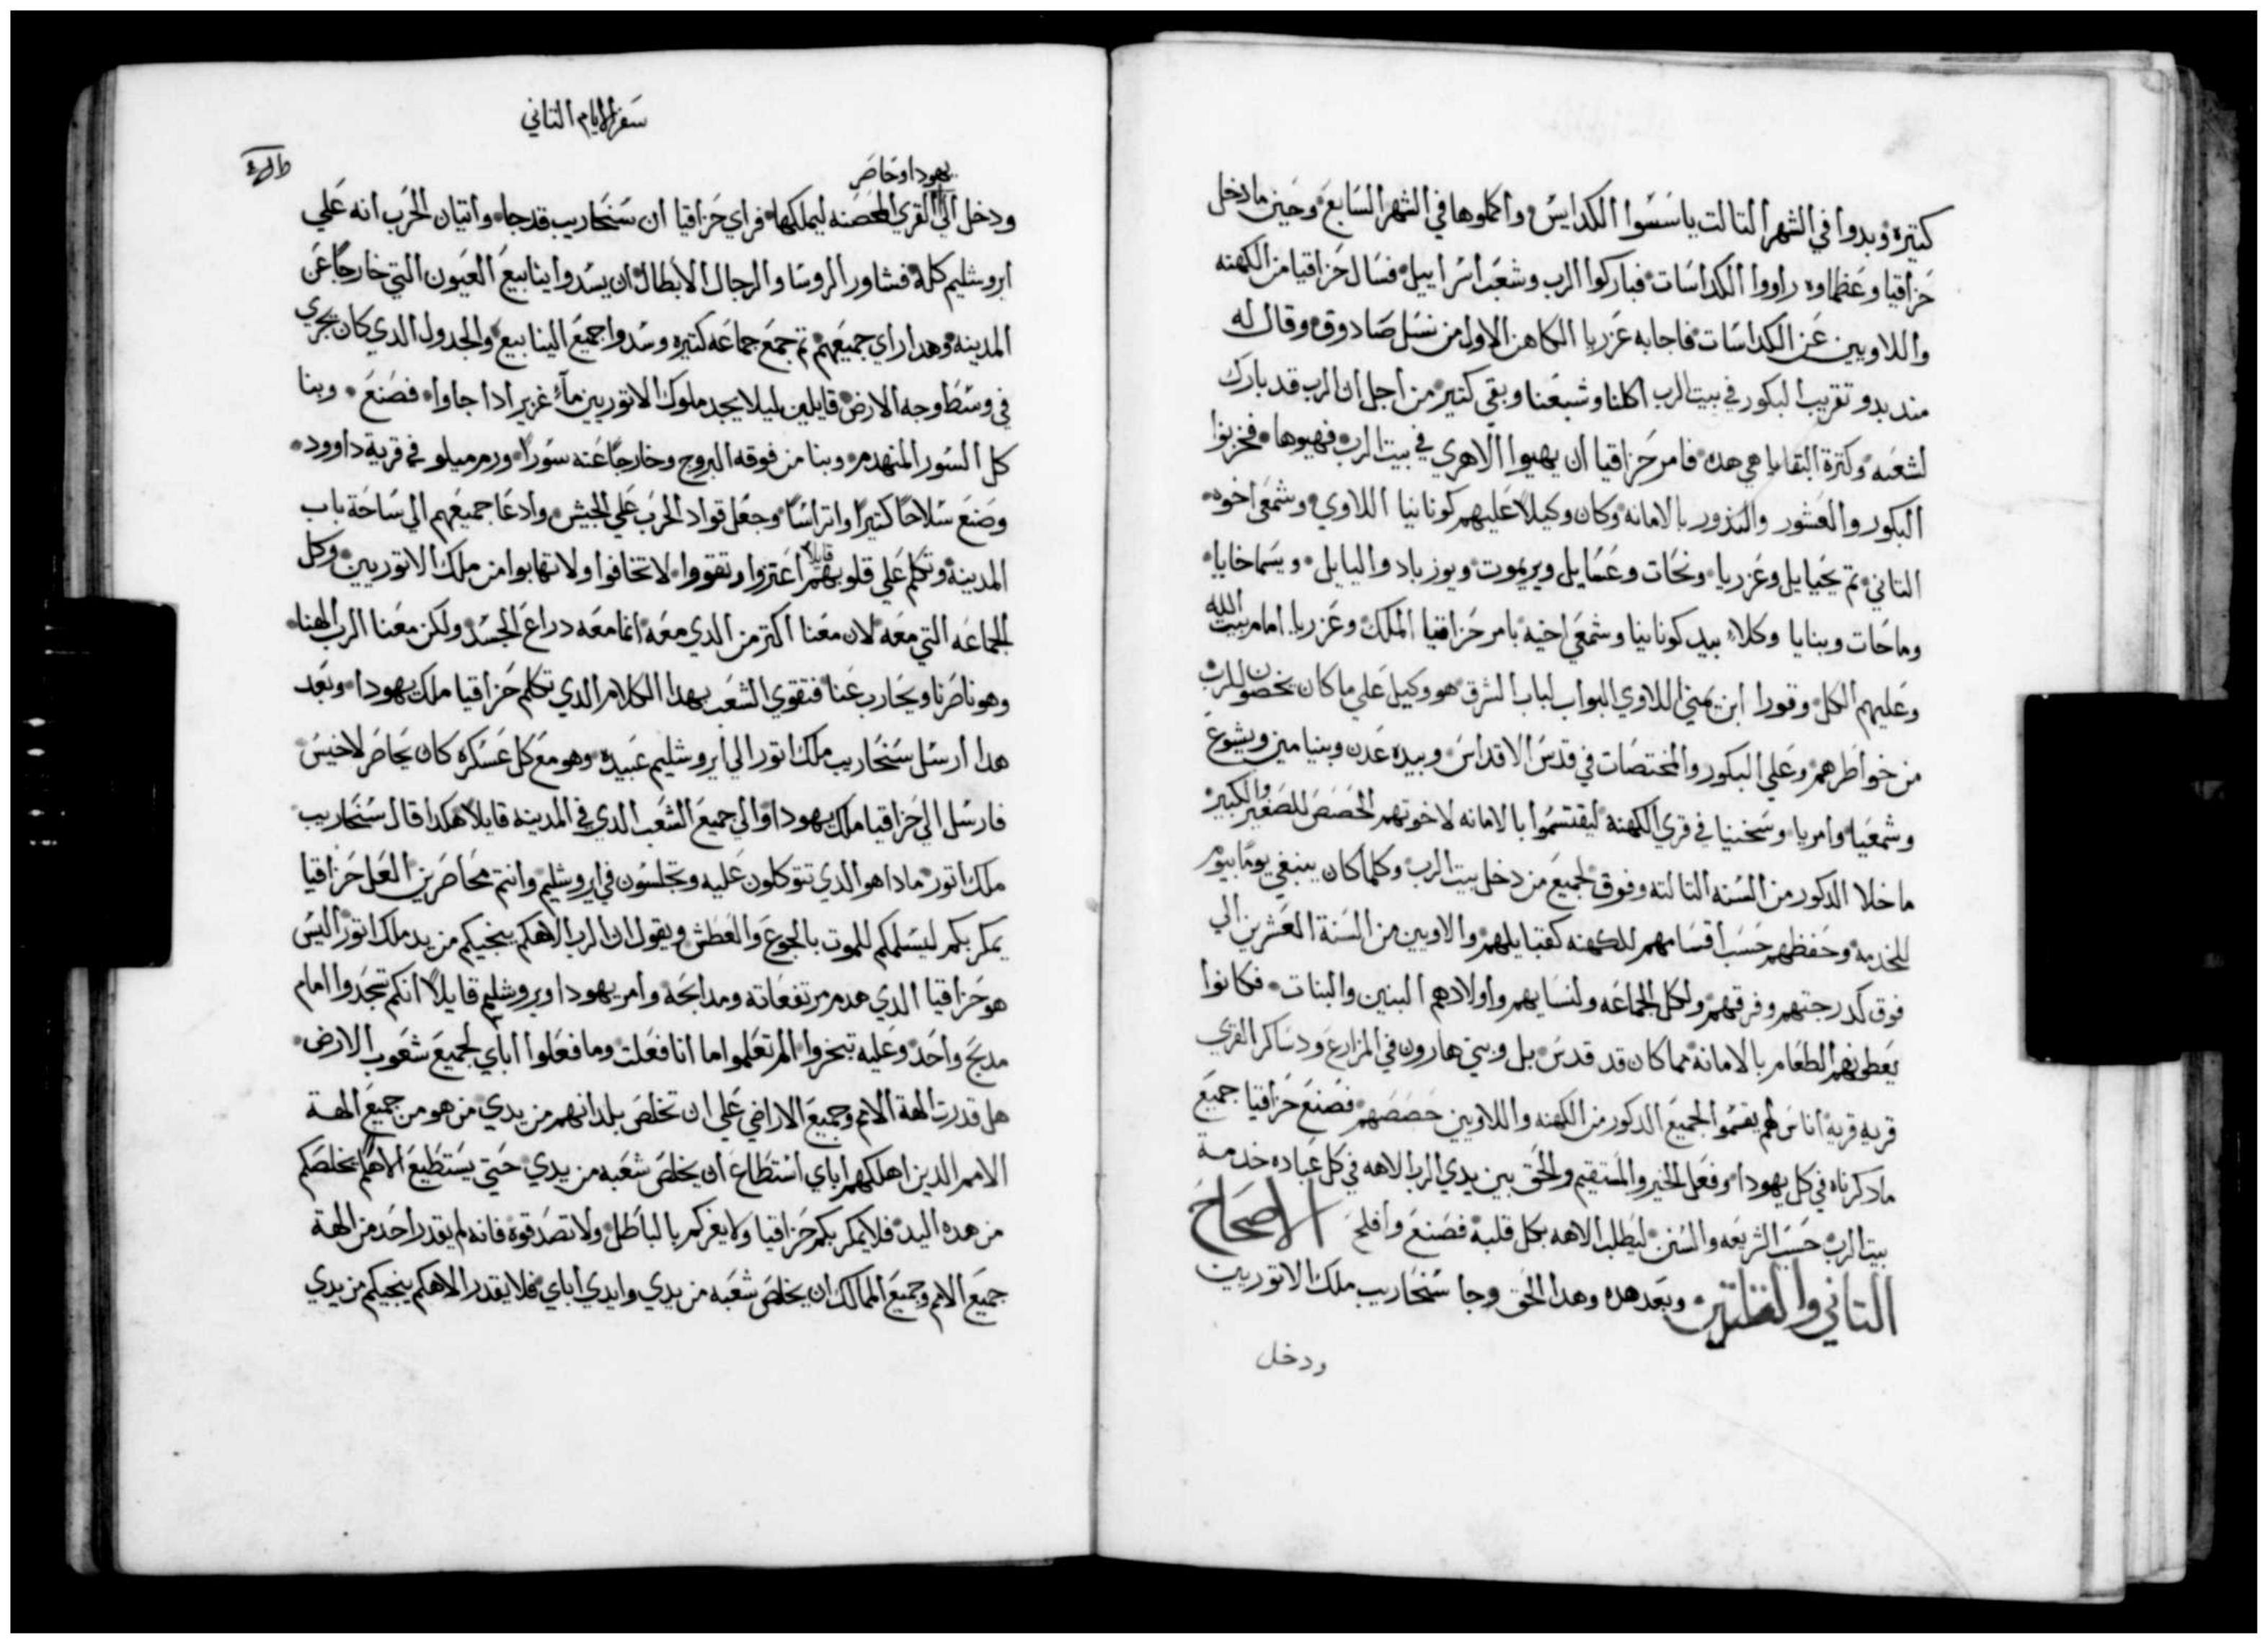 كتيره وبدوا في الشهر التالت ياسَسُوا الكدايسُ واكملوها في الشهر السَابعَ وحَين ما دخل
حَزاقيا وعَظماوه راووا الكداسَات فباركوا الرب وشعَب اسَراييل فسَال حَزاقيا من الكهنه
واللاويين عَن الكداسَات فاجابه عَزريا الكاهن الاول من نسَل صَادوق وقال له
مند بدو تقريب البكور في بيت الرب اكلنا وشبعَنا وبقي كتير من اجل ان الرب قد بارك
لشعَبه وكترة البقايا هي هده فامر حَزاقيا ان يهيوا الاهري في بيت الرب فهيوها فخزنوا
البكور والعَشور والندور بالامانه وكان وكيلاً عَليهم كونانيا اللاوي وشمعَي اخوه
التاني تم يحَيايل وعَزريا ونحَات وعَسَايل ويريموت ويوزباد واليايل ويسَماخايا
وماحَات وبنايا وكلاء بيد كونانيا وشمعَي اخيه بامر حَزاقيا الملك وعَزريا امام بيت الله
وعَليهم الكل وقورا ابن يمني اللاوي البواب لباب الشرق هو وكيل عَلي ما كان يخصَون للرب
من خواطَرهم وعَلي البكور والمختصَات في قدسَ الاقداسَ وبيده عَدن وبنيامين ويشوعَ
وشمعَيا وامريا وسَخنيا في قري الكهنة ليقتسَموا بالامانه لاخوتهم الحَصَصَ للصَغير والكبير
ما خلا الدكور من السَنه التالته وفوق لجميعَ من دخل بيت الرب وكلما كان ينبغي يومًا بيوم
للخدمة وحَفظهم حَسَب اقسَامهم للكهنه كقبايلهم والاويين من السَنة العَشرين الي
فوق كدرجتهم وفرقهم ولكل الجماعَه ولنسَايهم واولادهم البنين والبنات فكانوا
يعَطونهم الطعَام بالامانة مما كان قد قدسَ بل وبني هارون في المزارعَ ودسَاكر القري
قريه قرية اناسَ لهم يقسَموا لجميعَ الدكور من الكهنه واللاويين حَصَصَهم فصَنعَ حَزاقيا جميعَ
ما دكرناه في كل يهودا وفعَل الخير والمستقيم والحَق بين يدي الرب الاهه في كل عَباده خدمة
بيت الرب حَسَب الشريعَه والسَنن ليطَلب الاهه بكل قلبة فصَنعَ وافلحَ الاصحَاحَ
التاني والتلتين وبعَد هده وهدا الحَق وجا سَنحَاريب ملك الاتوريين
ودخل
سَفر الايام التاني
يهودا وحَاصَر
ودخل الي القري المحَصَنه ليملكها فراي حَزاقيا ان سَنحَاريب قد جا واتيان الحَرب انه عَلي
ايروشليم كله فشاور الروسَا والرجال الابطال ان يسَدوا ينابيعَ العَيون التي خارجًا عَن
المدينة وهدا راي جميعَهم تم جمعَ جماعَه كتيره وسَدوا جميعَ الينابيعَ والجدول الدي كان يجري
في وسَطَ وجه الارض قايلين ليلا يجد ملوك الاتوريين مآءً غزير ادا جاوا فصَنعَ وبنا
كل السَور المنهدم وبنا من فوقه البروج وخارجًا عَنه سَورًا ورمم ميلو في قرية داوود
وصَنعَ سَلاحًا كتيرًا واتراسًا وجعَل قواد الحَرب عَلي الجيش وادعَا جميعَهم الي سَاحَة باب
المدينة وتكلم عَلي قلوبهم قايلاً اعَتزوا وتقووا لا تخافوا ولا تهابوا من ملك الاتوريين وكل
الجماعَه التي معَه لان معَنا اكتر من الدي معَه انما معَه دراعَ الجسَد ولكن معَنا الرب الهنا
وهو ناصَرنا ويحَارب عَنا فتقوي الشعَب بهدا الكلام الدي تكلم حَزاقيا ملك يهودا وبعَد
هدا ارسَل سَنحَاريب ملك اتور الي ايروشليم عَبيده وهو معَ كل عَسَكره كان يحَاصَر لاخيسَ
فارسَل الي حَزاقيا ملك يهودا والي جميعَ الشعَب الدي في المدينه قايلاً هكدا قال سَنحَاريب
ملك اتور مادا هو الدي تتوكلون عَليه وتجلسَون في ايروشليم وانتم محَاصَرين العَل حَزاقيا
يمكر بكم ليسَلمكم للموت بالجوعَ والعَطَش ويقول ان الرب الاهكم ينجيكم من يد ملك اتور اليسَ
هو حَزاقيا الدي هدم مرتفعَاته ومدابحَه وامر يهودا ويروشليم قايلاً انكم تسجَدوا امام
مدبحَ واحَد وعَليه تبخروا الم تعَلموا ما انا فعَلت وما فعَلوا اباي لجميعَ شعَوب الارض
هل قدرت الهة الامم وجميعَ الاراضي عَلي ان تخلصَ بلدانهم من يدي من هو من جميعَ الهة
الامم الدين اهلكهم اباي اسَتطَاعَ ان يخلصَ شعَبه من يدي حَتي يسَتطَيعَ الاهكم يخلصَكم
من هده اليد فلا يمكر بكم حَزاقيا ولا يغركم بالباطَل ولا تصَدقوه فانه لم يقدر احَد من الهة
جميعَ الامم وجميعَ الممالك ان يخلصَ شعَبه من يدي وايدي اباي فلا يقدر الاهكم ينجيكم من يدي